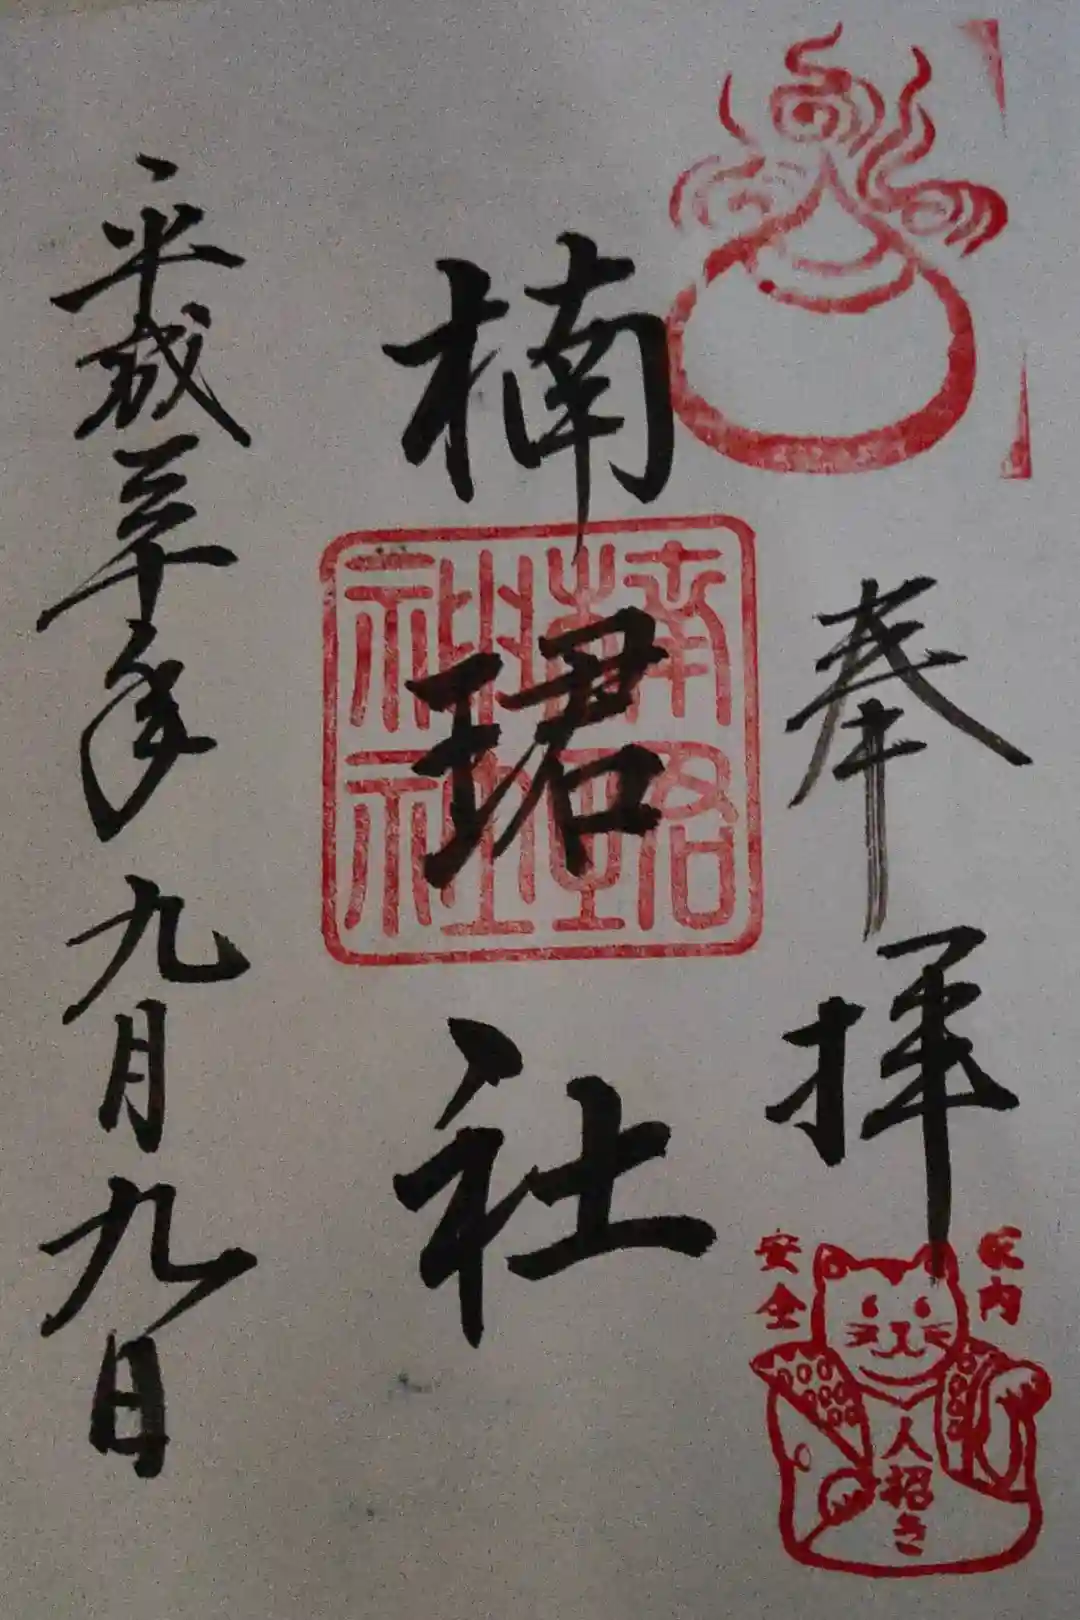 奉拝
家内
安全
人招き
楠珺社
平成三十年九月九日